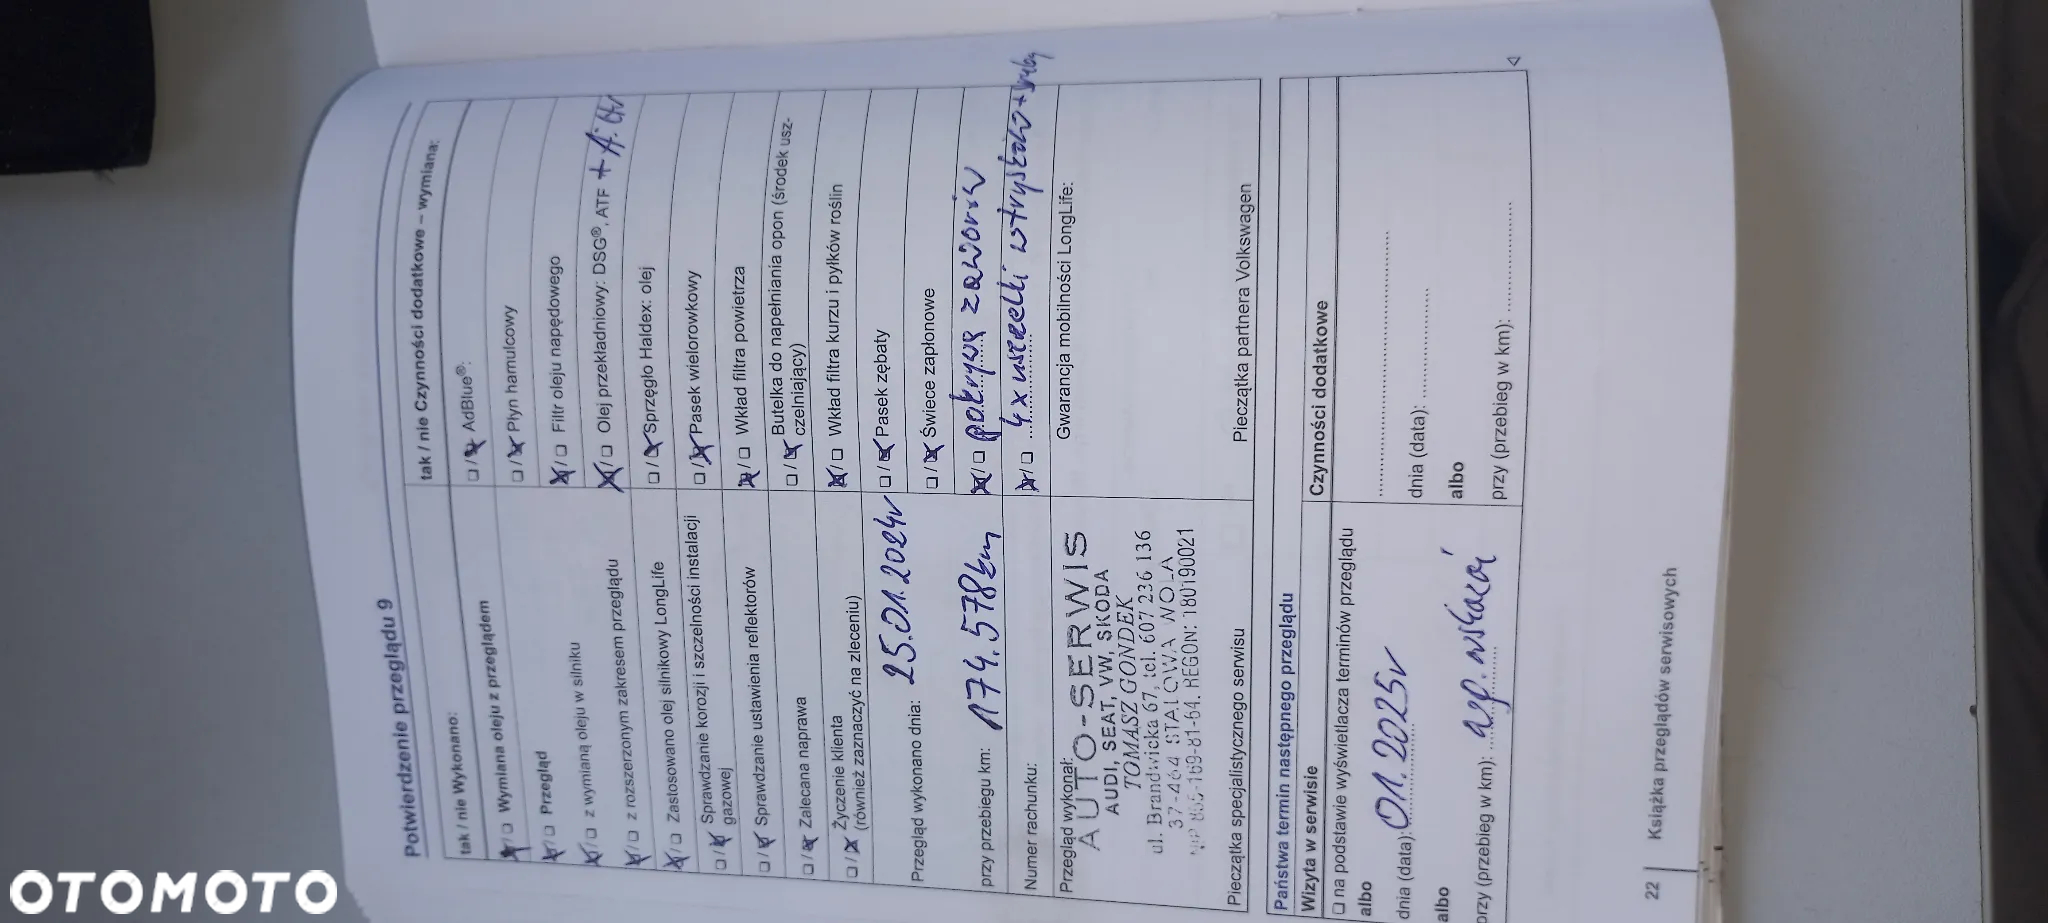 Potwierdzenie przeglądu 9
tak / nie Wykonano:
☒/☐ Wymiana oleju z przeglądem
☒/☐ Przegląd
☒/☐ z wymianą oleju w silniku
☒/☐ z rozszerzonym zakresem przeglądu
☒/☐ Zastosowano olej silnikowy LongLife
☐/☒ Sprawdzanie korozji i szczelności instalacji
gazowej
☐/☒ Sprawdzanie ustawienia reflektorów
☐/☒ Zalecana naprawa
☐/☒ Życzenie klienta
(również zaznaczyć na zleceniu)
Przegląd wykonano dnia: 25.01.2024r
przy przebiegu km: 174.578km
Numer rachunku:
Przegląd wykonał:
AUTO-SERWIS
AUDI, SEAT, VW, SKODA
TOMASZ GONDEK
ul. Brandwicka 67, tel. 607 236 136
37-464 STALOWA WOLA
NIP 865-169-81-64, REGON: 180190021
Pieczątka specjalistycznego serwisu
tak / nie Czynności dodatkowe – wymiana:
☐/☒ AdBlue®:
☐/☒ Płyn hamulcowy
☒/☐ Filtr oleju napędowego
☒/☐ Olej przekładniowy: DSG®, ATF +
☐/☒ Sprzęgło Haldex: olej
☐/☒ Pasek wielorowkowy
☒/☐ Wkład filtra powietrza
☐/☒ Butelka do napełniania opon (środek usz-
czelniający)
☒/☐ Wkład filtra kurzu i pyłków roślin
☐/☒ Pasek zębaty
☐/☒ Świece zapłonowe
☒/☐ pokrywa zaworów
☒/☐ 4x uszczelki wtryskiwa + śruby
Gwarancja mobilności LongLife:
Pieczątka partnera Volkswagen
Państwa termin następnego przeglądu
Wizyta w serwisie
☐ na podstawie wyświetlacza terminów przeglądu
albo
dnia (data): 01.2025r
albo
przy (przebieg w km): wsp. wskazań
Czynności dodatkowe
dnia (data):
albo
przy (przebieg w km):
22 Książka przeglądów serwisowych
OTOMOTO